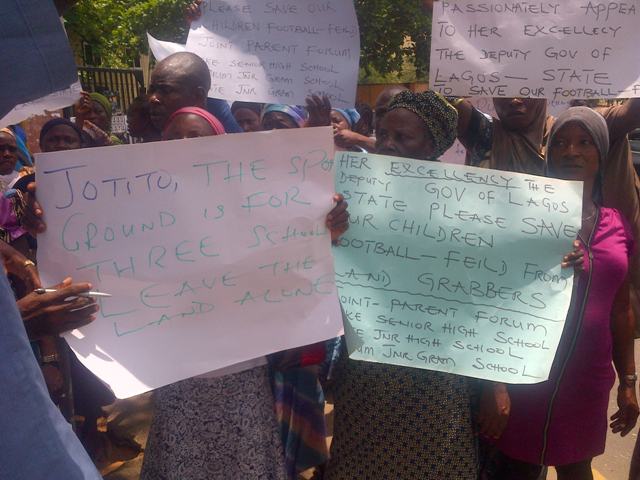 PLEASE SAVE OUR
CHILDREN FOOTBALL-FEILD
JOINT PARENT FORUM
SENIOR HIGH SCHOOL
JNR GRAM SCHOOL
JNR GRAM SCHOOL
PASSIONATELY APPEA
TO HER EXCELLECY
THE DEPUTY GOV OF
LAGOS- STATE
TO SAVE OUR FOOTBALL-F
JOTITO, THE SPO
GROUND IS FOR
THREE SCHOOL
LEAVE THE
LAND ALONE
HER EXCELLENCY THE
DEPUTY GOV OF LAGOS
STATE PLEASE SAVE
OUR CHILDREN
FOOTBALL-FEILD FROM
LAND GRABBERS
JOINT-PARENT FORUM
KE SENIOR HIGH SCHOOL
KE JNR HIGH SCHOOL
UM JNR GRAM SCHOOL